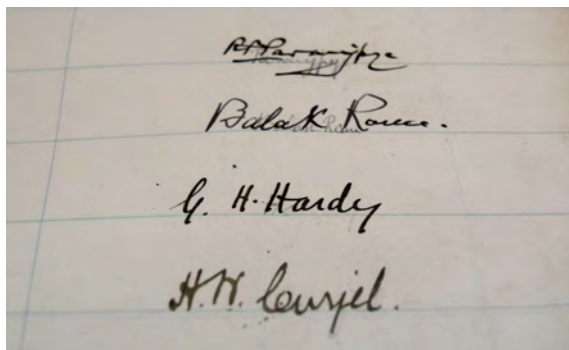 R P Paranjpye
Balak Ram.
G. H. Hardy
H. W. Curjel.